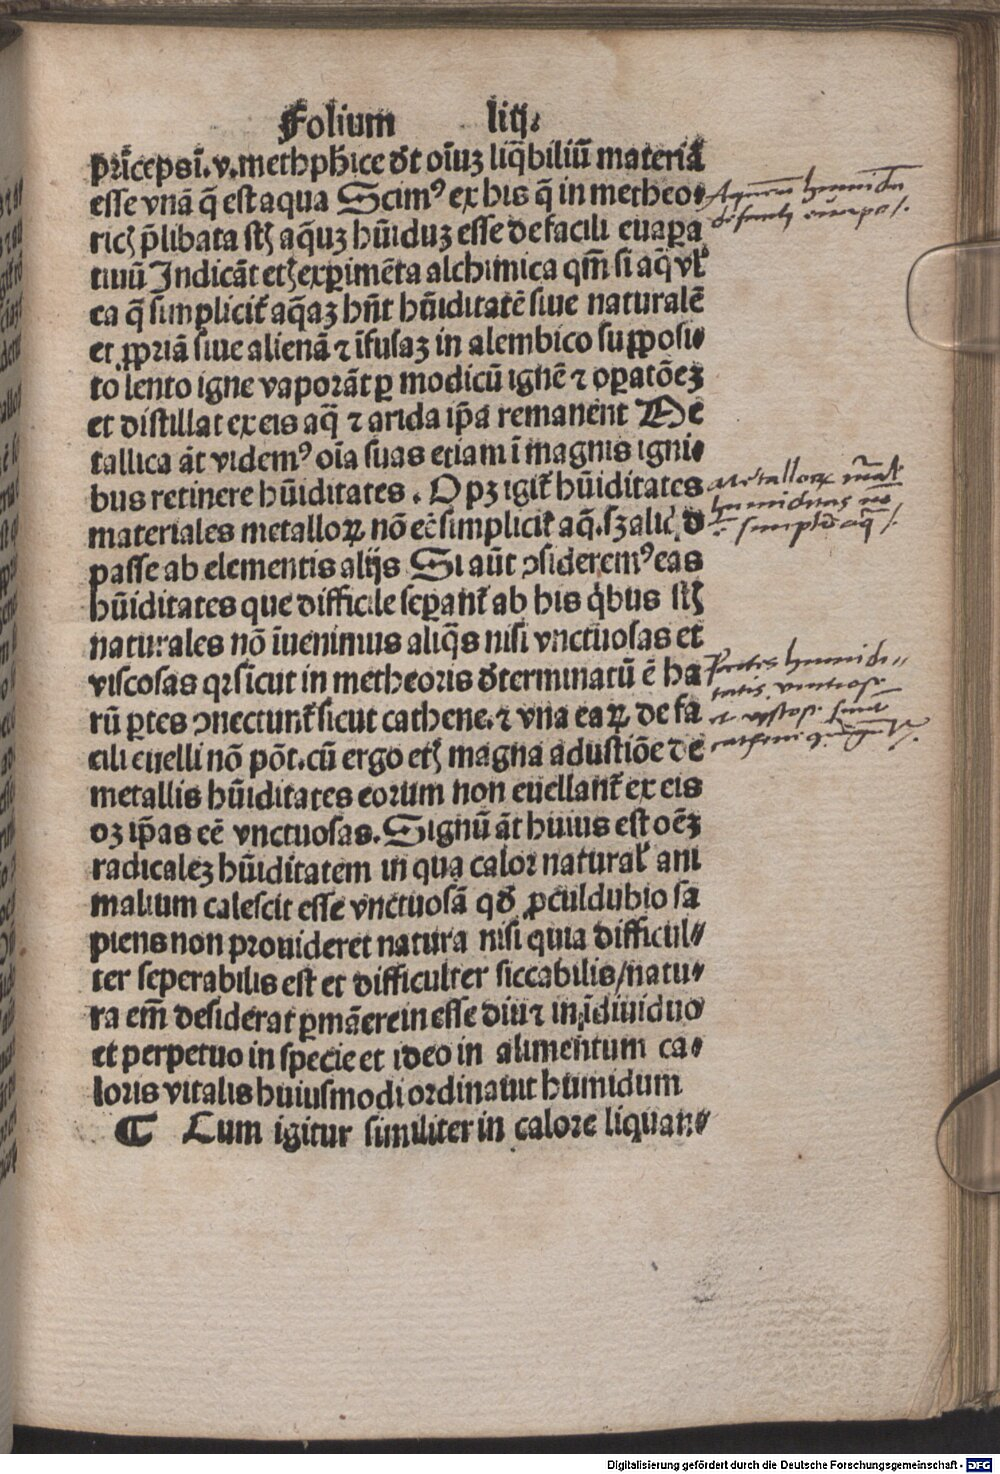 Folium liij.
prīceps ī.v.methph̄ice d̄t oīuꝫ liq̄biliū materiā
esse vnā q̄ est aqua Scimꝰ ex his q̄ in metheo⸗
ricꝭ p̄libata sūt aq̄uꝫ hūiduꝫ esse de facili euapa
tiuū Indicāt etꝭ experimēta alchimica qm̄ si aq̄ vl̄
ea q̄ simplicit̄ aq̄aꝫ hn̄t hūiditatē siue naturalē
et ꝓpriā siue alienā ⁊ īfusaꝫ in alembico supposi⸗
to lento igne vaporāt ꝑ modicū ignē ⁊ oꝑatōeꝫ
et distillat ex eis aq̄ ⁊ arida ip̄a remanent Me
tallica āt videmꝰ oīa suas etiam ī magnis igni⸗
bus retinere hūiditates. Opꝫ igit̄ hūiditates
materiales metalloꝝ nō eē simplicit̄ aq̄.sꝫ aliq̄d
passe ab elementis alijs Si aūt ↄsideremꝰ eas
hūiditates que difficile seꝑant̄ ab his q̇bus sūt
naturales nō īuenimus aliq̄s nisi vnctuosas et
viscosas qr sicut in metheoris d̄terminatū ē ha
rū ꝑtes ↄnectunt̄ sicut cathene.⁊ vna eaꝝ de fa
cili euelli nō pōt.cū ergo etꝭ magna adustiōe de
metallis hūiditates eorum non euellant̄ ex eis
oꝫ ip̄as eē vnctuosas.Signū āt huius est oēꝫ
radicaleꝫ hūiditatem in qua calor natural̄ ani
malium calescit esse vnctuosā qd̄ ꝓculdubio sa
piens non prouideret natura nisi quia difficul⸗
ter seperabilis est et difficulter siccabilis/natu⸗
ra em̄ desiderat ꝑmāere in esse diu ⁊ in īdiuiduo
et perpetuo in specie et ideo in alimentum ca⸗
loris vitalis huiusmodi ordinauit humidum
¶ Cum igitur similiter in calore liquan⸗
Metalloꝝ
simplex aq̄
Partes humidi⸗
tatis
Digitalisierung gefördert durch die Deutsche Forschungsgemeinschaft - DFG